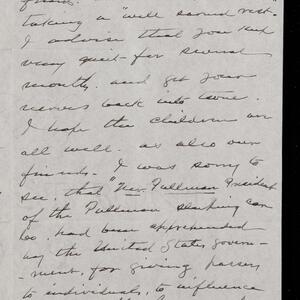 friend.
taking a "well earned rest".
I advise that you keep
very quiet for several
months. and get your
nerves back into tone.
I hope the children are
all well. as also our
friends. I was sorry to
see, that "Mr. Pullman President
of the Pullman sleeping car
Co. had been apprehended
by the United States Govern-
-ment, for giving passes
to individuals, to influence